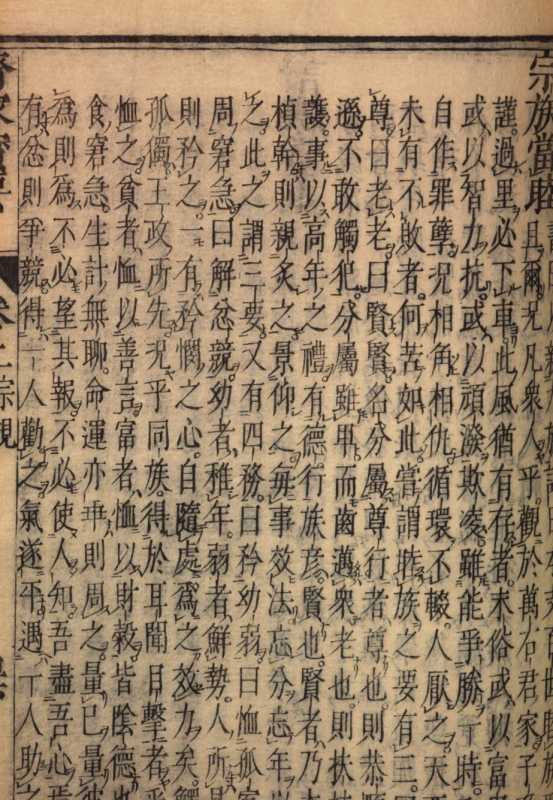 宗族當睦
且爾況凡衆人乎觀於萬石君家子
謹過里必下車此風猶有存者末俗或以富
或以智力抗或以頑潑欺凌雖能爭勝一時
自作罪孽況相角相仇循環不輟人厭之天
未有不敗者何苦如此嘗謂睦族之要有三
尊曰老老曰賢賢名分屬尊行者尊也則恭
遜不敢觸犯分屬雖卑而齒邁衆老也則扶
護事以高年之禮有德行族彦賢也賢者乃
楨幹則親炙之景仰之每事效法忘分忘年
之此之謂三要又有四務曰矜幼弱曰恤孤
周窘急曰解忿競幼者稚年弱者鮮勢人所
則矜之一有矜憫之心自隨處爲之效力矣
孤獨王政所先況乎同族得於耳聞目擊者
恤之貧者恤以善言富者恤以財穀皆陰德也
食窘急生計無聊命運亦乖則周之量己量彼
爲則爲不必望其報不必使人知吾盡吾心焉
有忿則爭競得一人勸之氣遂平遇一人助之